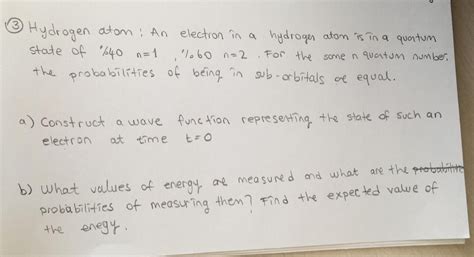 ③ Hydrogen atom : An electron in a hydrogen atom is in a quantum
state of %40 n=1 , %60 n=2 . For the same n quantum number,
the probabilities of being in sub-orbitals are equal.
a) Construct a wave function representing the state of such an
electron at time t=0
b) What values of energy are measured and what are the probabilitie
probabilities of measuring them? Find the expected value of
the enegy.